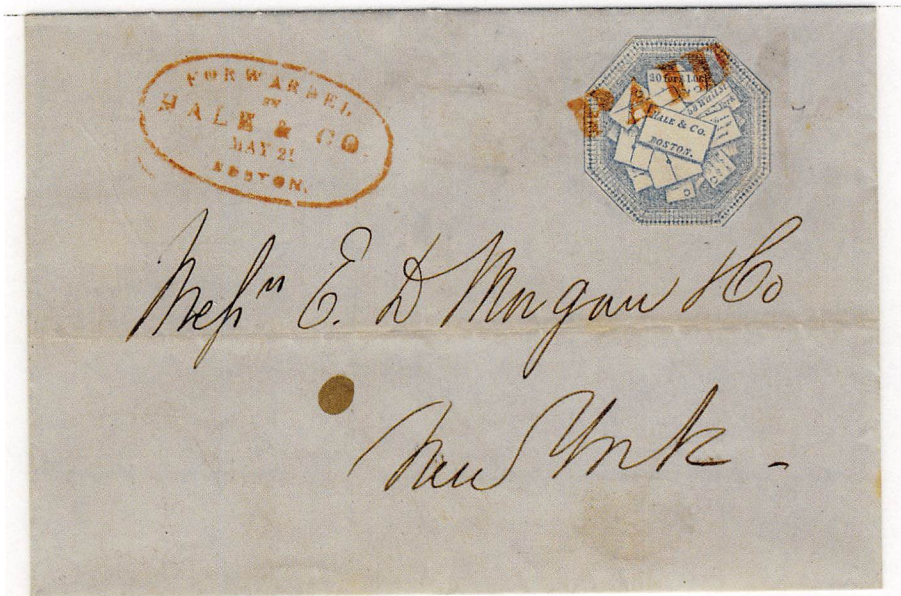 FORWARDED
BY
HALE & CO.
MAY 21
BOSTON.
PAID
20 for $1
HALE & Co.
BOSTON.
Messrs E. D Morgan & Co
New York -